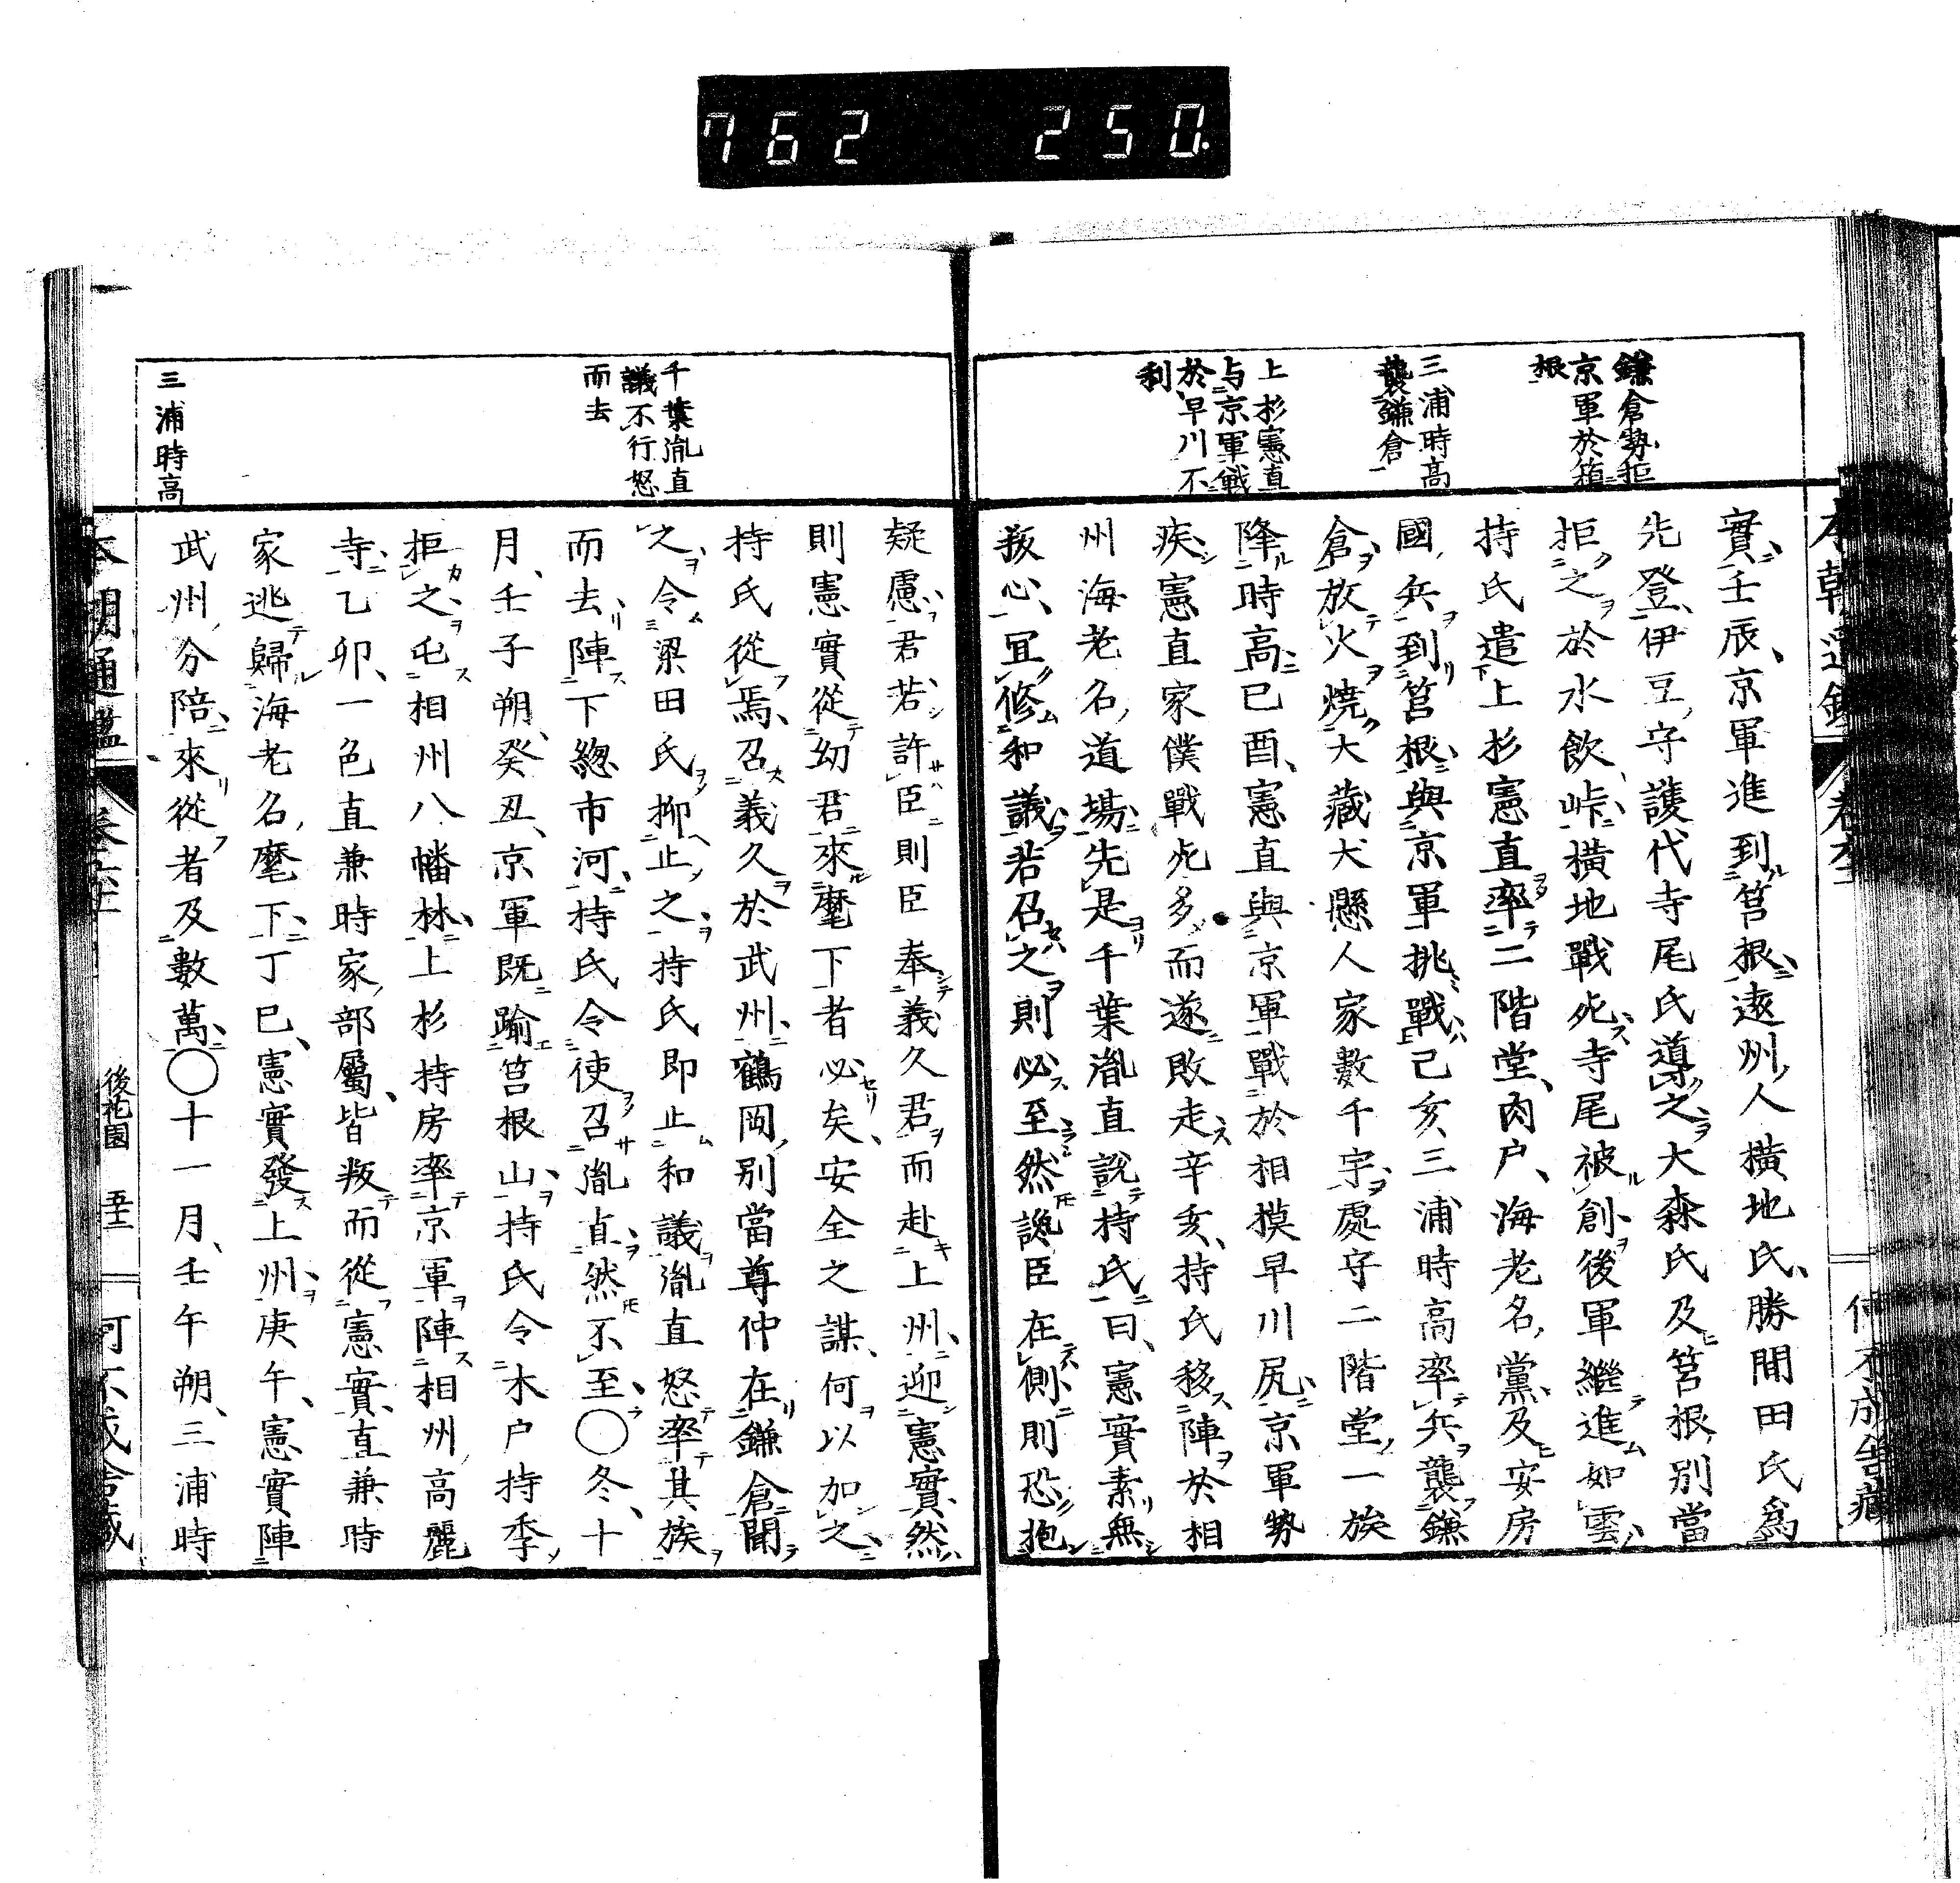 762 250.
鎌倉勢拒
京軍於箱
根
三浦時高
襲鎌倉
上杉憲直
与京軍戦
於早川不
利
實壬辰京軍進到筥根遠州人横地氏勝間田氏爲
先登伊豆守護代寺尾氏導之大森氏及筥根別當
拒之於水飲峠横地戰死寺尾被創後軍繼進如雲
持氏遣上杉憲直率二階堂肉戸海老名黨及安房
國兵到筥根與京軍挑戰己亥三浦時高率兵襲鎌
倉放火燒大藏犬懸人家數千宇處守二階堂一族
降時高己酉憲直與京軍戰於相摸早川尻京軍勢
疾憲直家僕戰死多而遂敗走辛亥持氏移陣於相
州海老名道場先是千葉胤直說持氏曰憲實素無
叛心宜修和議若召之則必至然讒臣在側則恐抱
千葉胤直
議不行怒
而去
三浦時高
疑慮君若許臣則臣奉義久君而赴上州迎憲實然
則憲實從幼君來麾下者必矣安全之謀何以加之
持氏從焉召義久於武州鶴岡別當尊仲在鎌倉聞
之令梁田氏抑止之持氏即止和議胤直怒率其族
而去陣下總市河持氏令使召胤直然不至○冬十
月壬子朔癸丑京軍既踰筥根山持氏令木戸持季
拒之屯相州八幡林上杉持房率京軍陣相州高麗
寺乙卯一色直兼時家部屬皆叛而從憲實直兼時
家逃歸海老名麾下丁巳憲實發上州庚午憲實陣
武州分陪來從者及數萬○十一月壬午朔三浦時
本朝通鑑
後花園
五十二